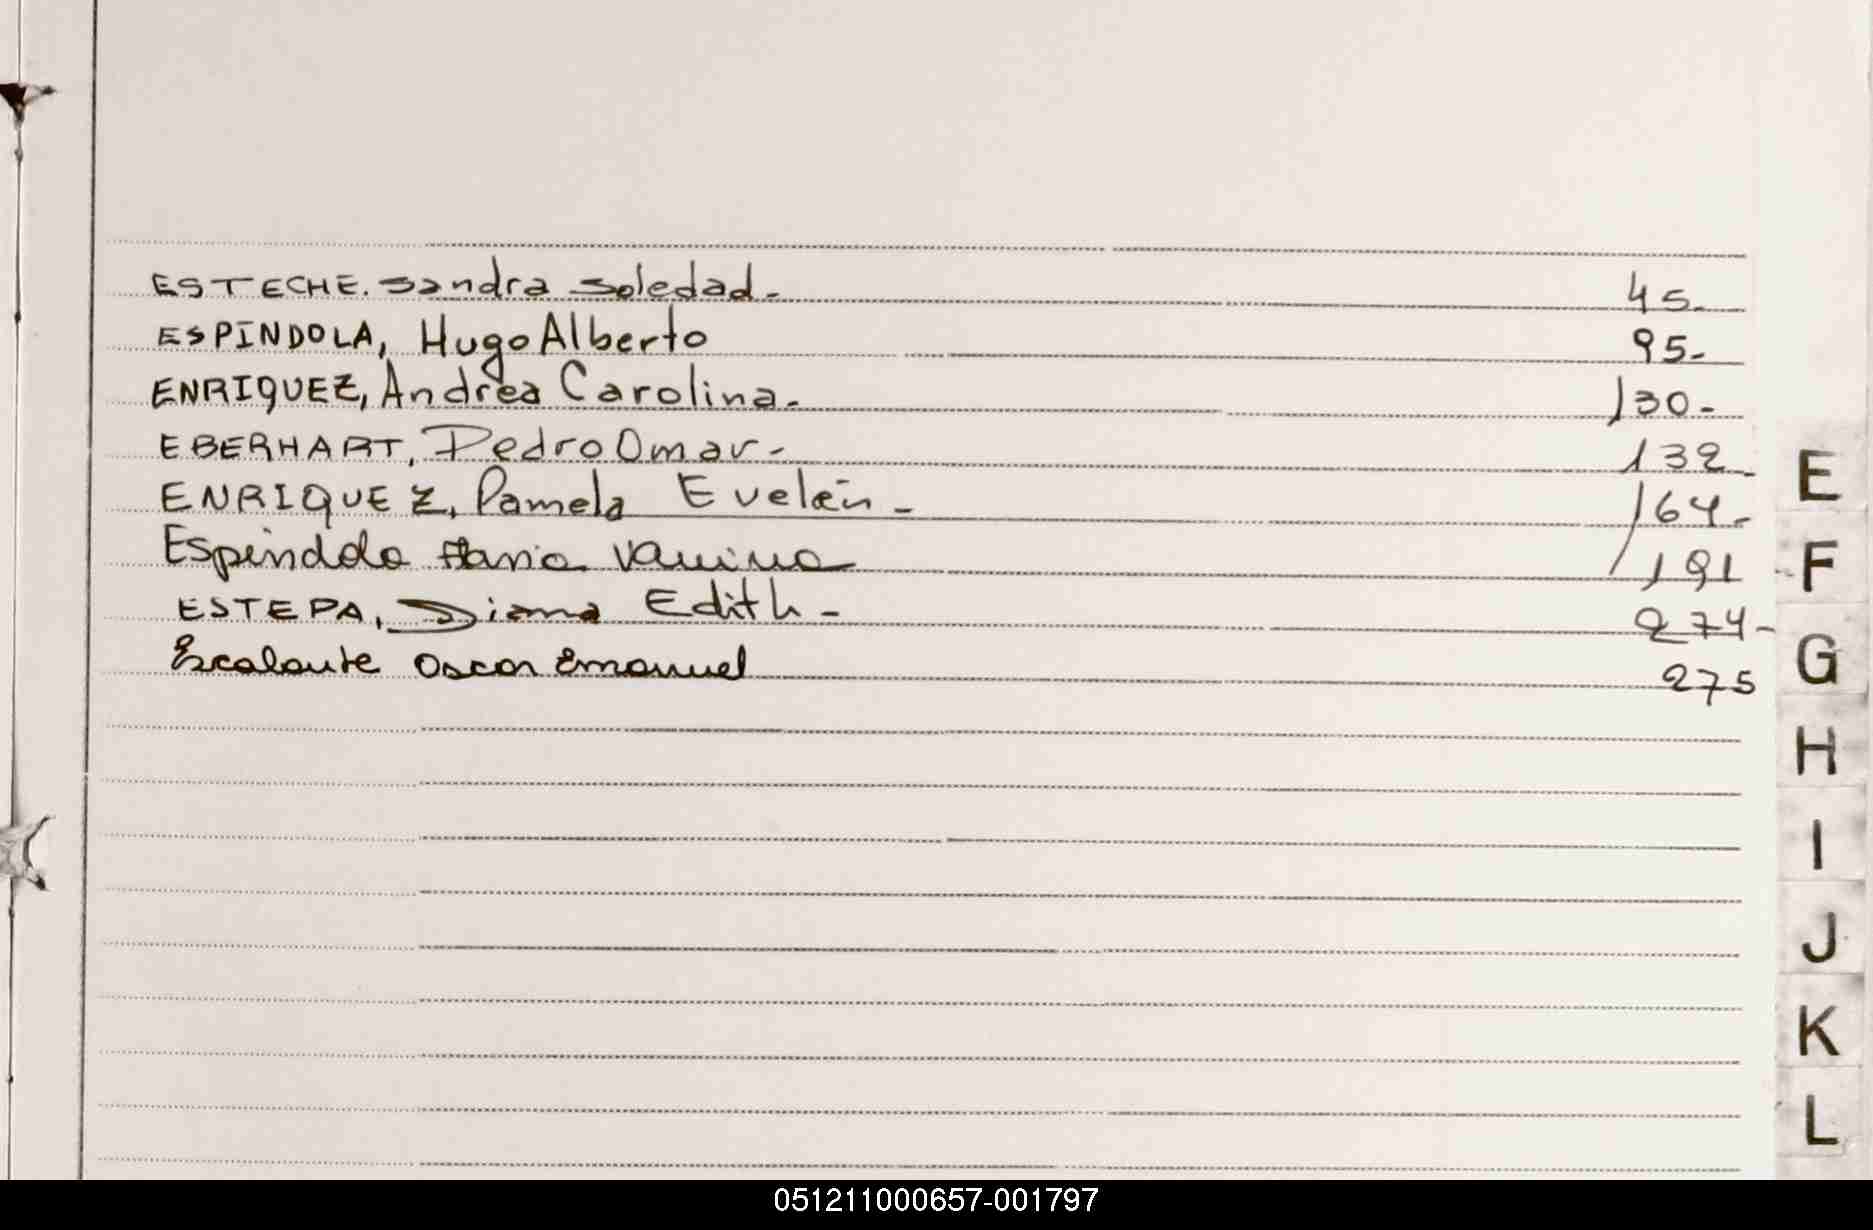 ESTECHE. Sandra Soledad. 45.
ESPINDOLA, Hugo Alberto 95-
ENRIQUEZ, Andrea Carolina. 130-
EBERHART, Pedro Omar - 132-
ENRIQUEZ, Pamela Evelin - 164-
Espindola Maria Vanina 191
ESTEPA, Diana Edith - 274-
Escalante Oscar Emanuel 275
E
F
G
H
I
J
K
L
051211000657-001797